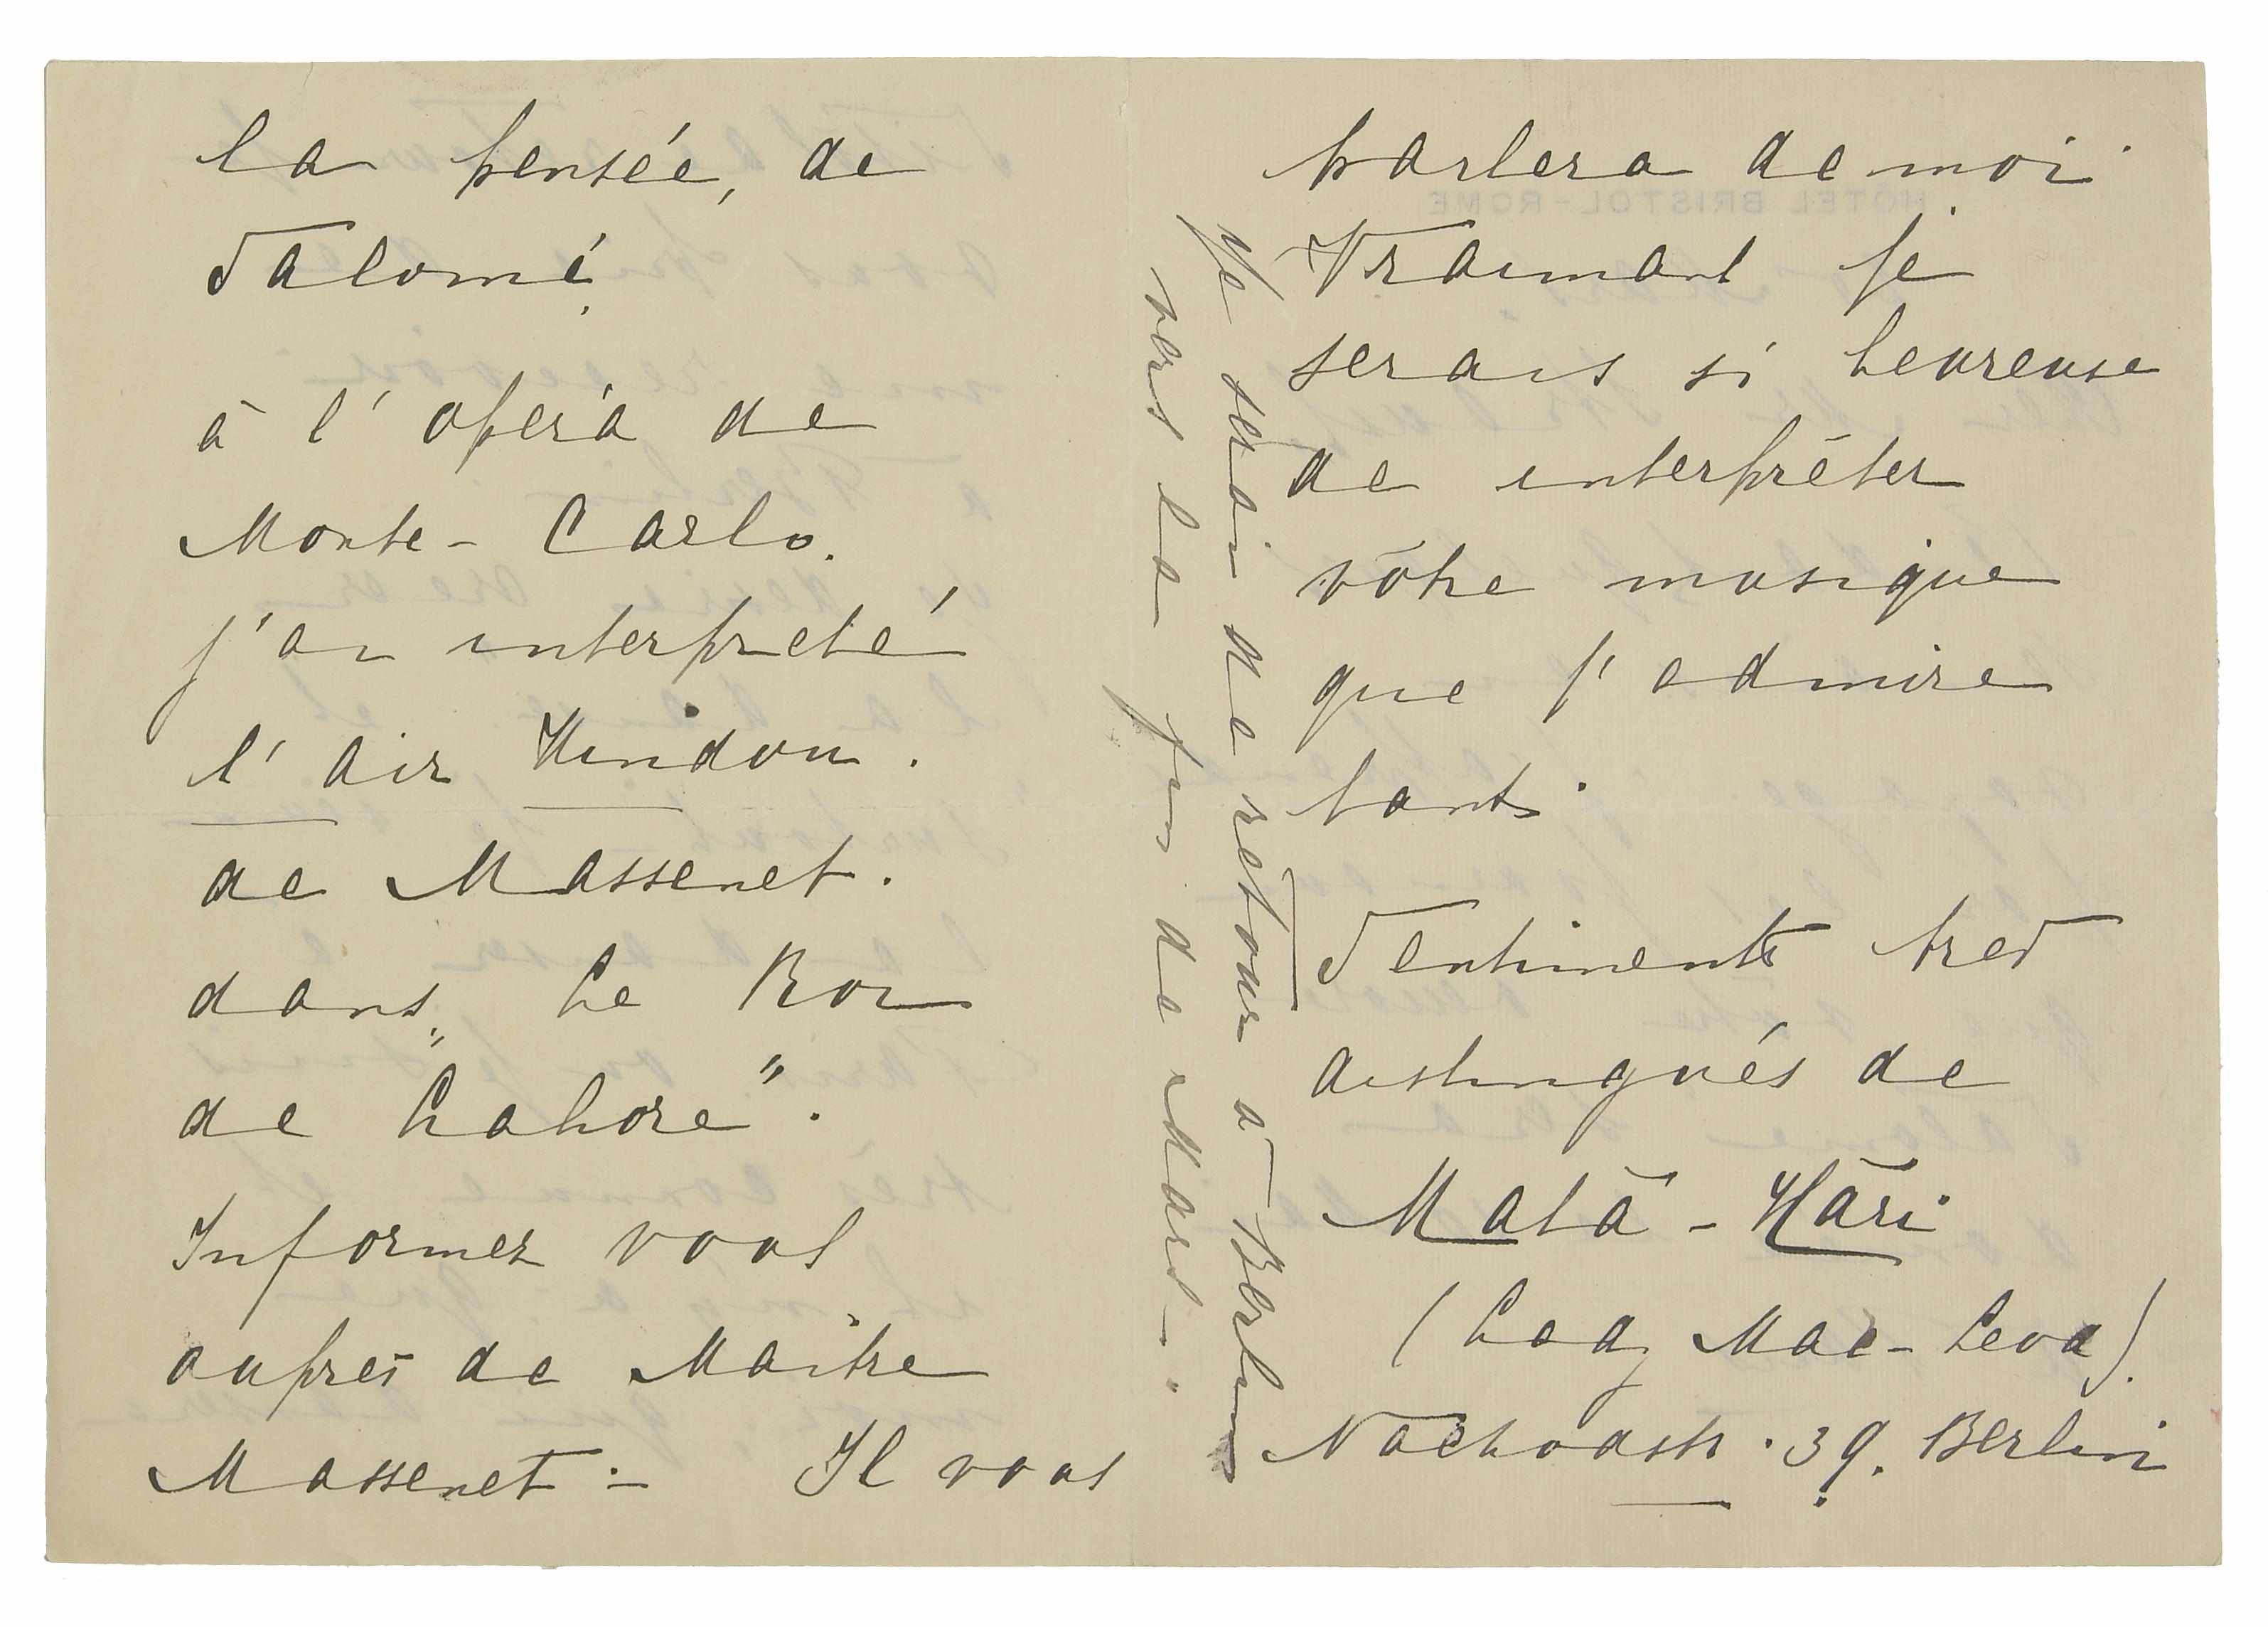 la pensée, de
Salomé.
à l'opéra de
Monte-Carlo.
j'ai interpreté
l'air Hindou.
de Massenet.
dans „Le Roi
de Lahore".
Informez vous
auprès de Maitre
Massenet - Il vous
parlera de moi.
Vraimant je
serais si heureuse
de interpréter
vôtre musique
que j'admire
tant.
Sentiments tres
distingués de
Matā-Hāri
(Lady Mac-Leod).
Nachodstr. 39. Berlin
Je serai de retour à Berlin
vers la fin de Mars -
HOTEL BRISTOL-ROME